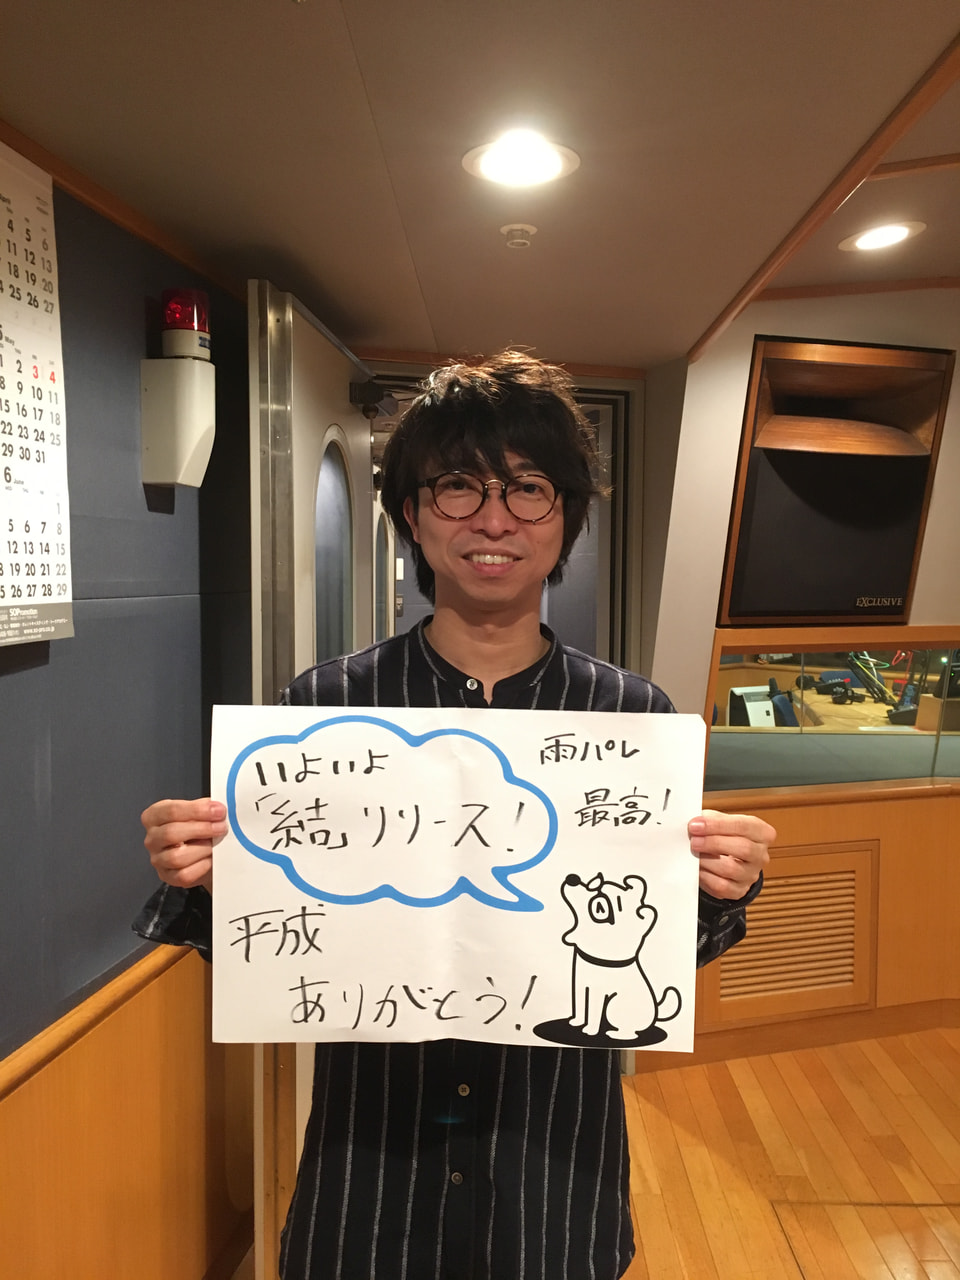 いよいよ
「結」リリース!
雨パレ
最高!
平成
ありがとう!
EXCLUSIVE
4 5 6
11 12 13
18 19 20
25 26 27
5 May
1 2 3 4
8 9 10 11
15 16 17 18
22 23 24 25
29 30 31
6 June
1
5 6 7 8
12 13 14 15
18 19 20 21 22
25 26 27 28 29
SOPromotion